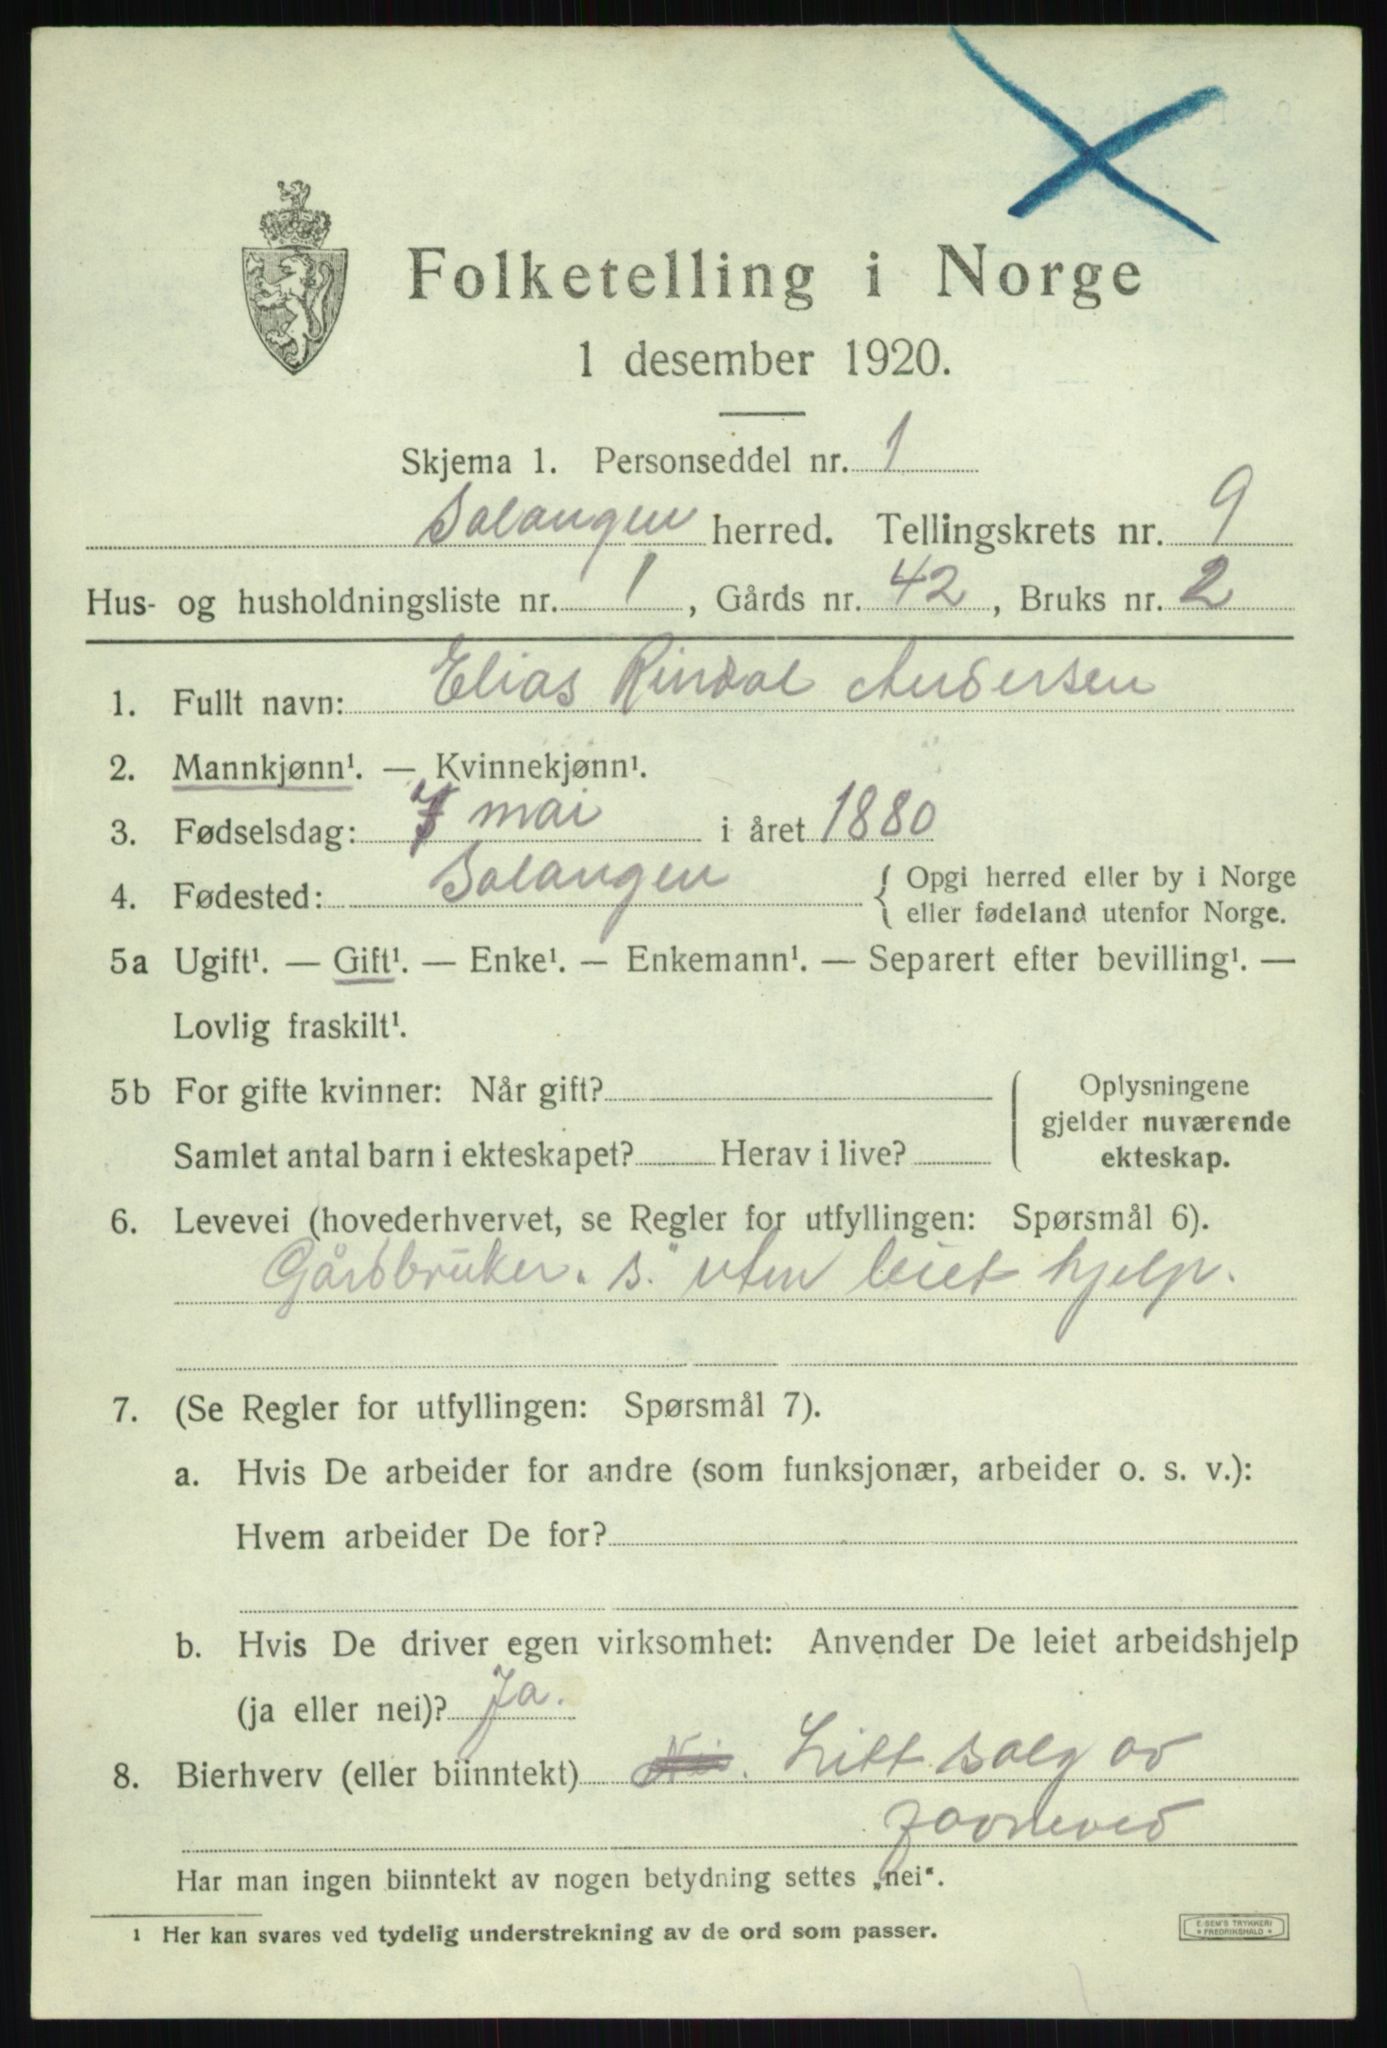 Folketelling i Norge
1 desember 1920.
Skjema 1. Personseddel nr. 1
Salangen herred. Tellingskrets nr. 9
Hus- og husholdningsliste nr. 1, Gårds nr. 42, Bruks nr. 2
1. Fullt navn: Elias Rindal Andersen
2. Mannkjønn¹. — Kvinnekjønn¹.
3. Fødselsdag: 7 mai i året 1880
4. Fødested: Salangen { Opgi herred eller by i Norge
eller fødeland utenfor Norge.
5a Ugift¹. — Gift¹. — Enke¹. — Enkemann¹. — Separert efter bevilling¹. —
Lovlig fraskilt¹.
5b For gifte kvinner: Når gift? { Oplysningene
gjelder nuværende
Samlet antal barn i ekteskapet? Herav i live? ekteskap.
6. Levevei (hovederhvervet, se Regler for utfyllingen: Spørsmål 6).
Gårdbruker. "s." uten leiet hjelp.
7. (Se Regler for utfyllingen: Spørsmål 7).
a. Hvis De arbeider for andre (som funksjonær, arbeider o. s. v.):
Hvem arbeider De for?
b. Hvis De driver egen virksomhet: Anvender De leiet arbeidshjelp
(ja eller nei)? Ja.
8. Bierhverv (eller biinntekt) Nei. Litt salg av
favneved
Har man ingen biinntekt av nogen betydning settes „nei“.
1 Her kan svares ved tydelig understrekning av de ord som passer.
E. SEM'S TRYKKERI
* FREDRIKSHALD *